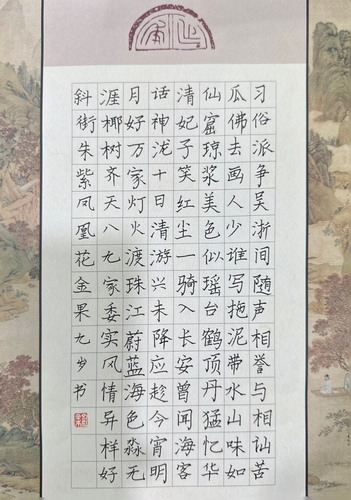 习俗派争吴浙间随声相誉与相讪苦
瓜佛去画人少谁写拖泥带水山味如
仙窟琼浆美色似瑶台鹤顶丹猛忆华
清妃子笑红尘一骑入长安曾闻海客
话神泷十日清游兴未降应趁今宵明
月好万家灯火渡珠江蔚蓝海色淼无
涯椰树齐天八九家委实风情异样好
斜街朱紫凤凰花金果九岁书